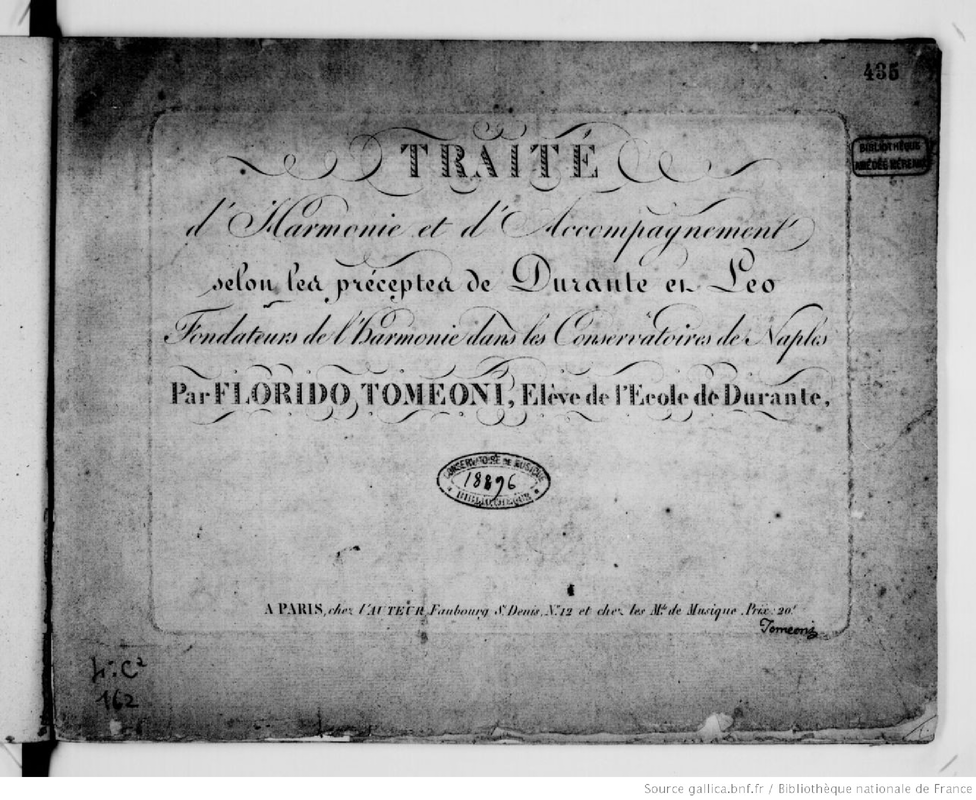 435
BIBLIOTHÈQUE
TRAITÉ
d'Harmonie et d'Accompagnement
selon les préceptes de Durante et Leo
Fondateurs de l'Harmonie dans les Conservatoires de Naples
Par FLORIDO TOMEONI, Elève de l'Ecole de Durante,
CONSERVATOIRE DE MUSIQUE
18896
BIBLIOTHÈQUE
A PARIS, chez l'AUTEUR, Faubourg St. Denis, No. 12 et chez les Mds. de Musique. Prix: 20f
Tomeoni
L.C²
162
Source gallica.bnf.fr / Bibliothèque nationale de France